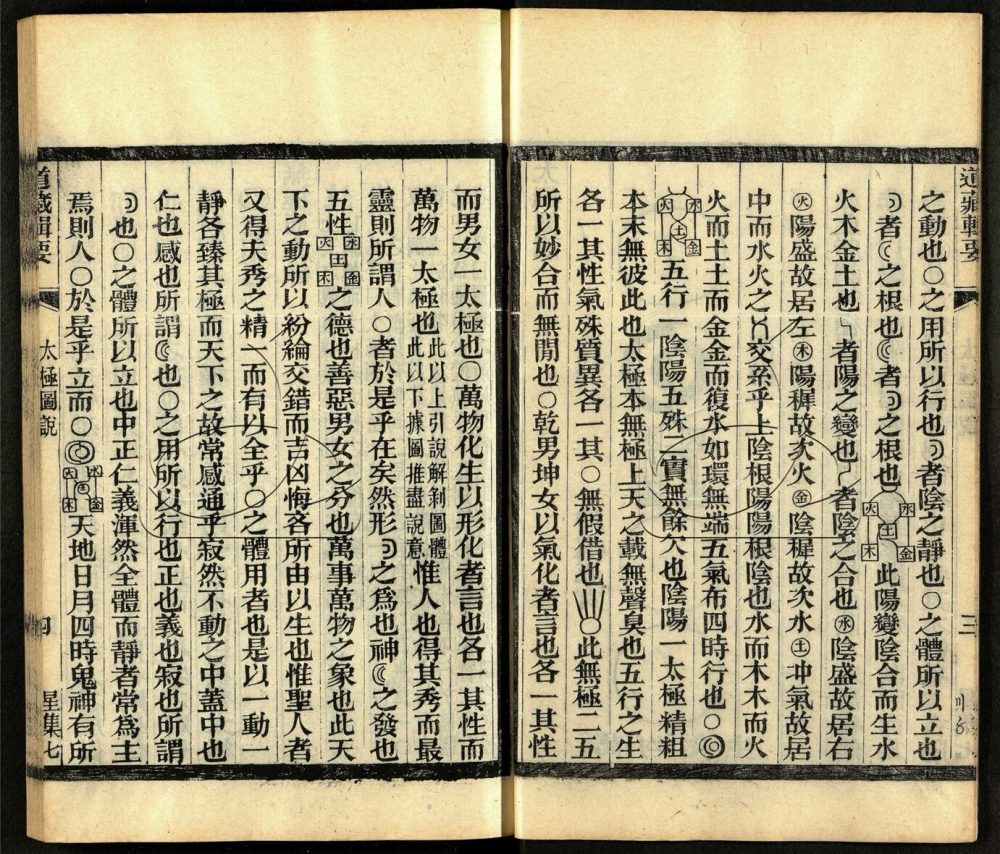 道藏輯要
之動也○之用所以行也者陰之靜也○之體所以立也
者之根也者之根也水火土木金此陽變陰合而生水
火木金土也者陽之變也者陰之合也水陰盛故居右
火陽盛故居左木陽穉故次火金陰穉故次水土沖氣故居
中而水火之交系乎上陰根陽陽根陰也水而木木而火
火而土土而金金而復水如環無端五氣布四時行也○
水火土金木五行一陰陽五殊二實無餘欠也陰陽一太極精粗
本末無彼此也太極本無極上天之載無聲臭也五行之生
各一其性氣殊質異各一其○無假借也○此無極二五
所以妙合而無閒也○乾男坤女以氣化者言也各一其性
三
而男女一太極也○萬物化生以形化者言也各一其性而
萬物一太極也此以上引說解剝圖體此以下據圖推盡說意惟人也得其秀而最
靈則所謂人○者於是乎在矣然形之為也神之發也
五性水火土金木之德也善惡男女之分也萬事萬物之象也此天
下之動所以紛綸交錯而吉凶悔吝所由以生也惟聖人者
又得夫秀之精一而有以全乎○之體用者也是以一動一
靜各臻其極而天下之故常感通乎寂然不動之中蓋中也
仁也感也所謂也○之用所以行也正也義也寂也所謂
也○之體所以立也中正仁義渾然全體而靜者常為主
焉則人○於是乎立而○水火土金木天地日月四時鬼神有所
道藏輯要
太極圖說
四
星集七